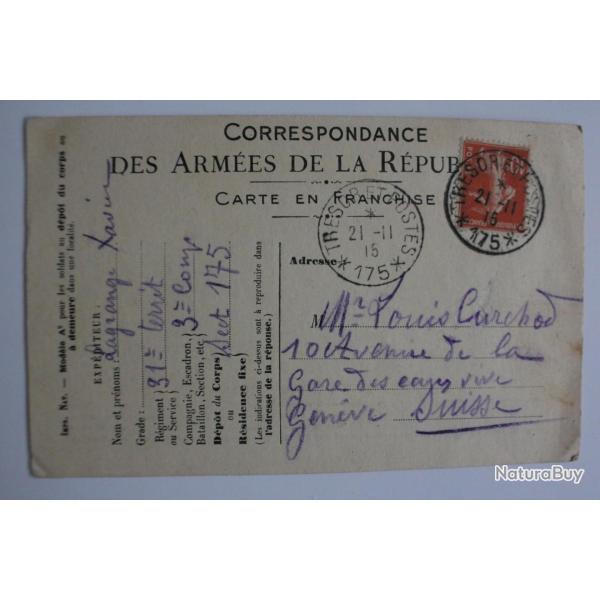 CORRESPONDANCE
DES ARMÉES DE LA RÉPUB
CARTE EN FRANCHISE
TRESOR ET POSTES
*
21 -11
15
* 175 *
TRESOR ET POSTES
*
21 -11
15
* 175 *
Impr. Nat. — Modèle A¹ pour les soldats au dépôt du corps ou
à demeure dans une localité.
EXPÉDITEUR:
Nom et prénoms Lagrange Xavier
Grade:
Régiment 31e territ
ou Service)
Compagnie, Escadron, 3e Comp
Bataillon, Section, etc.
Dépôt du Corps) Sect 175
ou
Résidence fixe)
(Les indications ci-dessus sont à reproduire dans
l'adresse de la réponse.)
Adresse
M Mr Louis Curchod
10 Avenue de la
Gare des eaux vive
Genève Suisse
NaturaBuy